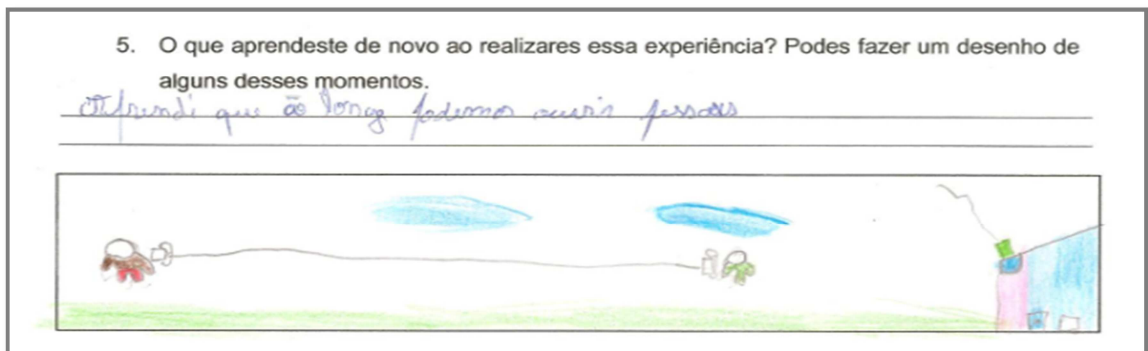 5. O que aprendeste de novo ao realizares essa experiência? Podes fazer um desenho de
alguns desses momentos.
Aprendi que ão longe podemos ouvir pessoas